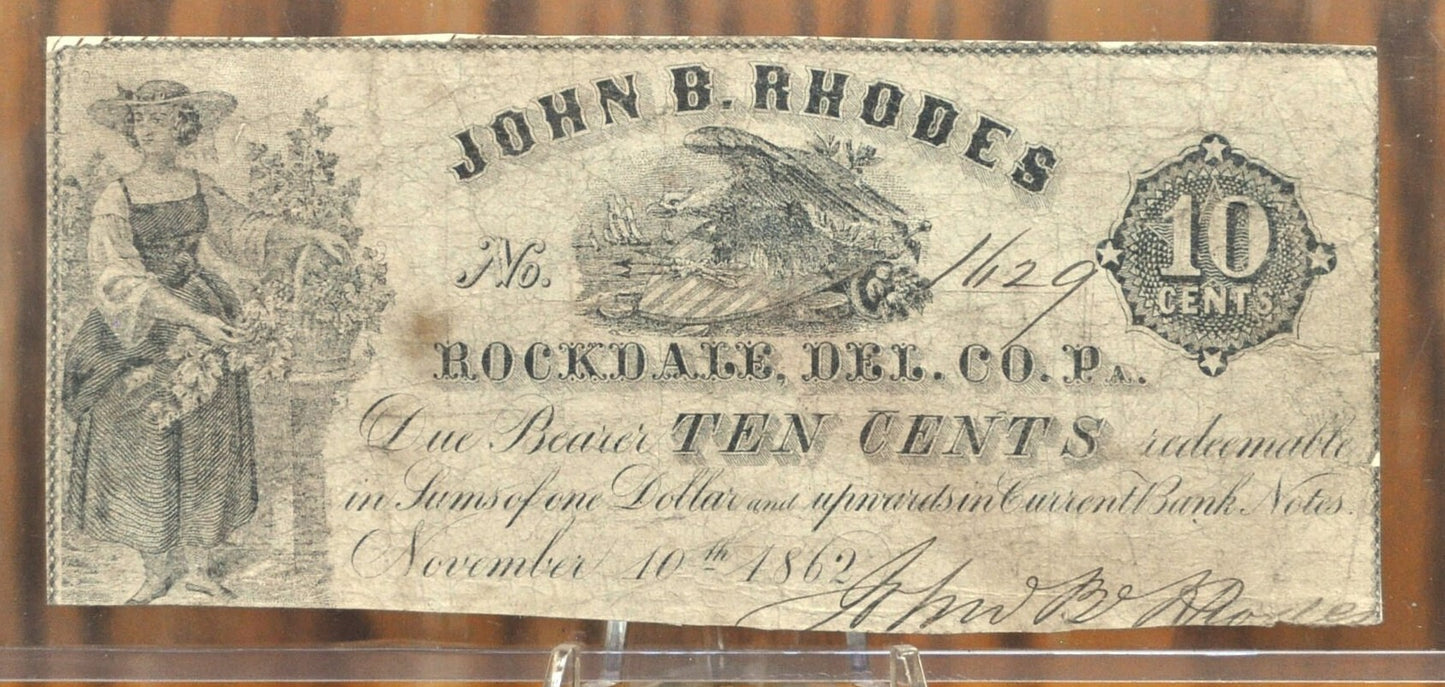 JOHN B. RHODES
No. 1629
10
CENTS
ROCKDALE, DEL. CO. PA.
Due Bearer TEN CENTS redeemable
in Sums of one Dollar and upwards in Current Bank Notes.
November 10th 1862
John B Rhodes